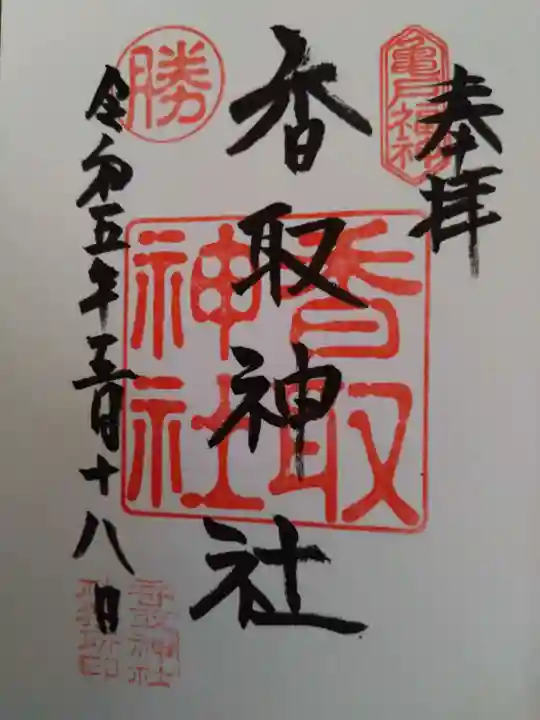 奉拝
亀戸福神
香取神社
香取神社
勝
令和五年三月十八日
香取神社
社務所印